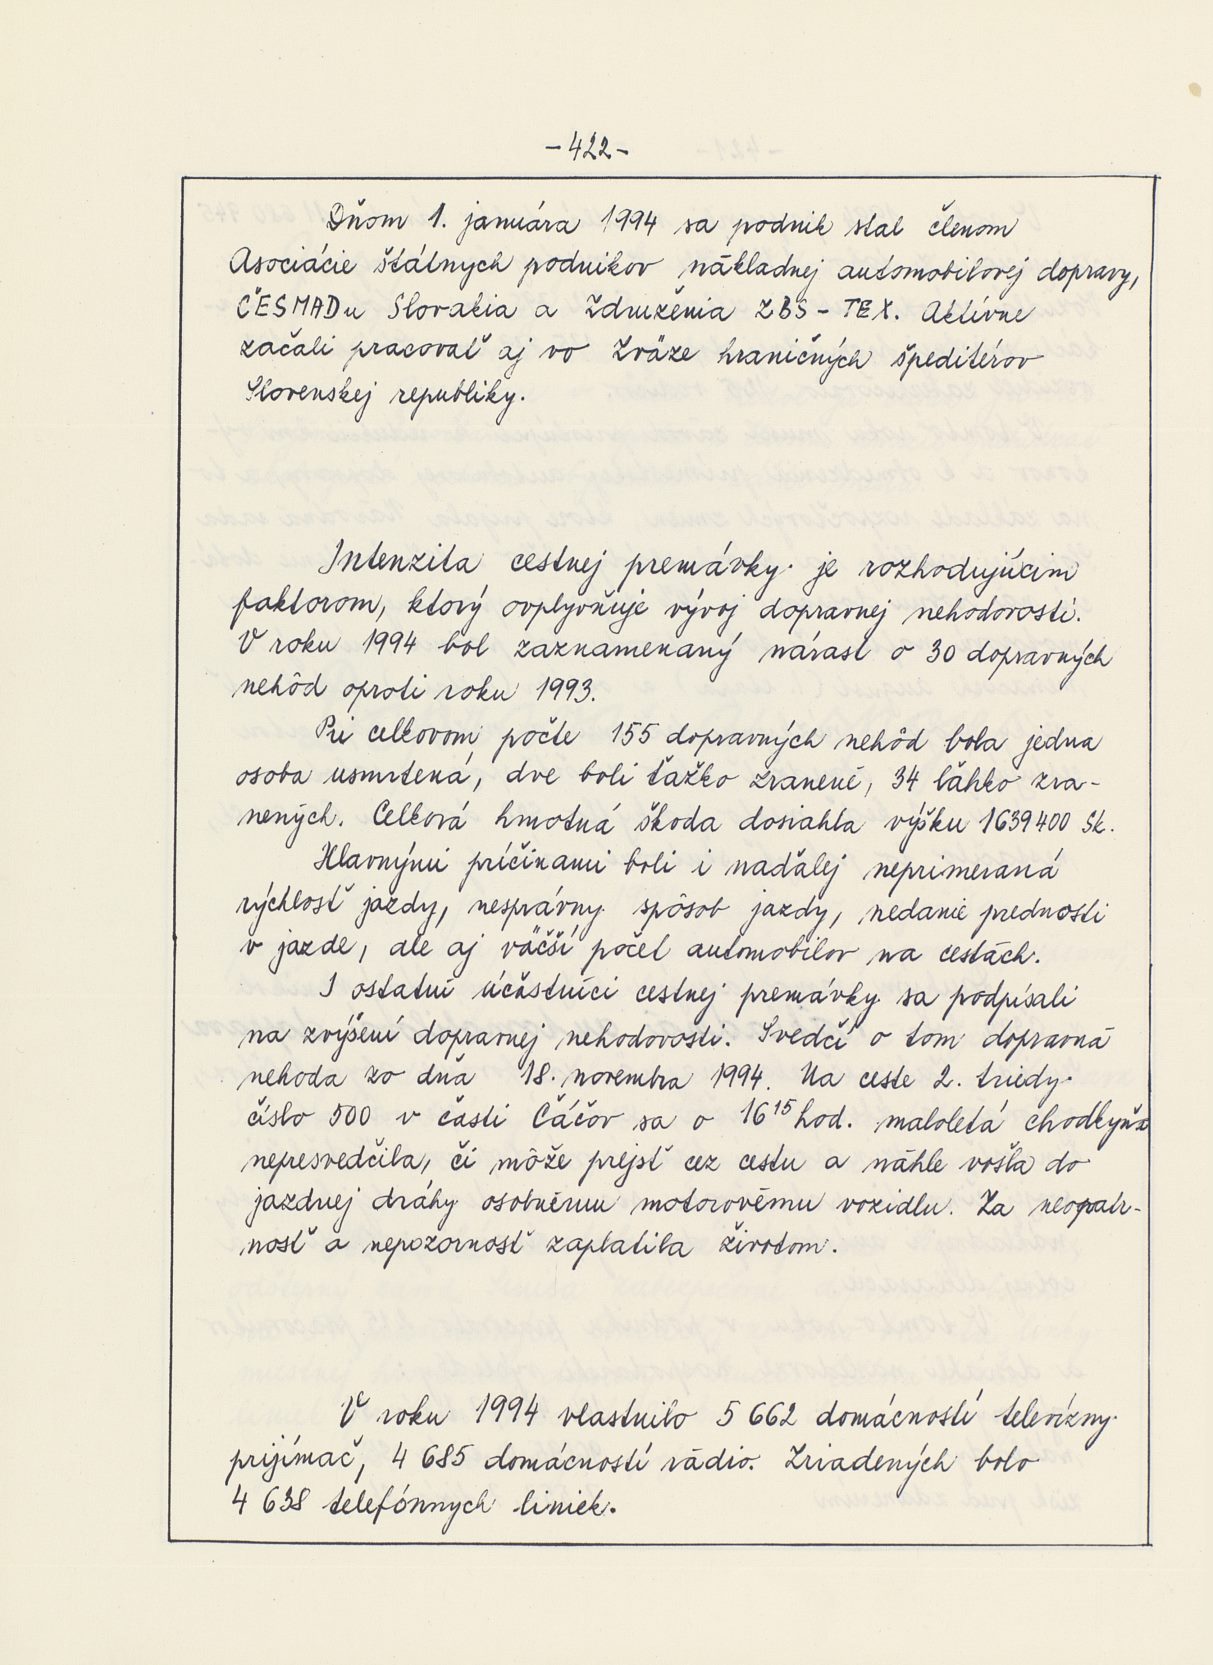 -422-
Dňom 1. januára 1994 sa podnik stal členom
Asociácie štátnych podnikov nákladnej automobilovej dopravy,
ČESMADu Slovakia a Združenia ZBS-TEX. Aktívne
začali pracovať aj vo Zväze hraničných špeditérov
Slovenskej republiky.
Intenzita cestnej premávky je rozhodujúcim
faktorom, ktorý ovplyvňuje vývoj dopravnej nehodovosti.
V roku 1994 bol zaznamenaný nárast o 30 dopravných
nehôd oproti roku 1993.
Pri celkovom počte 155 dopravných nehôd bola jedna
osoba usmrtená, dve boli ťažko zranené, 34 ľahko zra-
nených. Celková hmotná škoda dosiahla výšku 1639400 Sk.
Hlavnými príčinami boli i naďalej neprimeraná
rýchlosť jazdy, nesprávny spôsob jazdy, nedanie prednosti
v jazde, ale aj väčší počet automobilov na cestách.
I ostatní účastníci cestnej premávky sa podpísali
na zvýšení dopravnej nehodovosti. Svedčí o tom dopravná
nehoda zo dňa 18. novembra 1994. Na ceste 2. triedy
číslo 500 v časti Čáčov sa o 16¹⁵ hod. maloletá chodkyňa
nepresvedčila, či môže prejsť cez cestu a náhle vošla do
jazdnej dráhy osobnému motorovému vozidlu. Za neopatr-
nosť a nepozornosť zaplatila životom.
V roku 1994 vlastnilo 5 662 domácností televízny
prijímač, 4 685 domácností rádio. Zriadených bolo
4 638 telefónnych liniek.